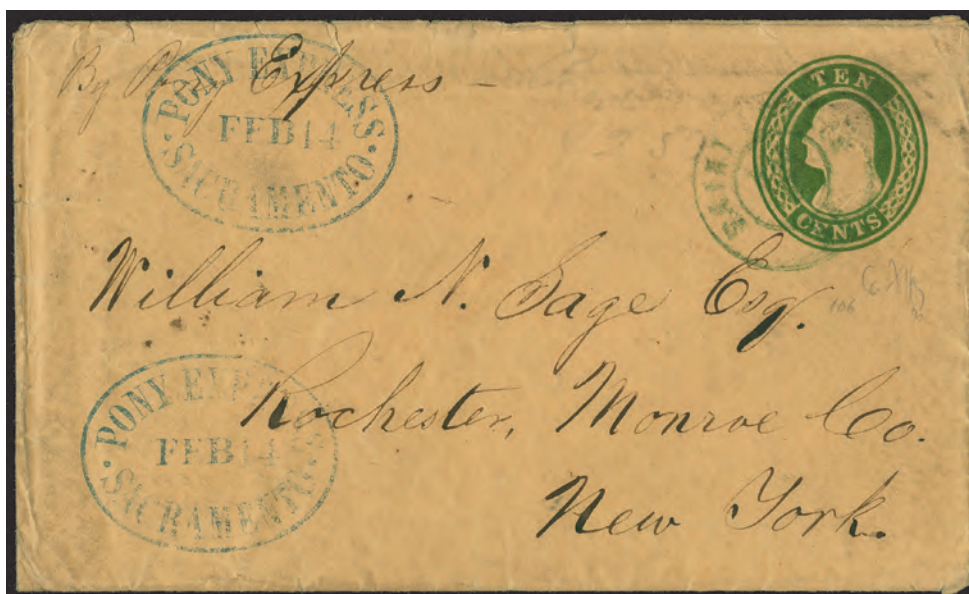 By Pony Express –
PONY EXPRESS
FEB 14
SACRAMENTO
TEN
CENTS
William N. Sage Esq.
106
Rochester, Monroe Co.
PONY EXPRESS
FEB 14
SACRAMENTO
New York.